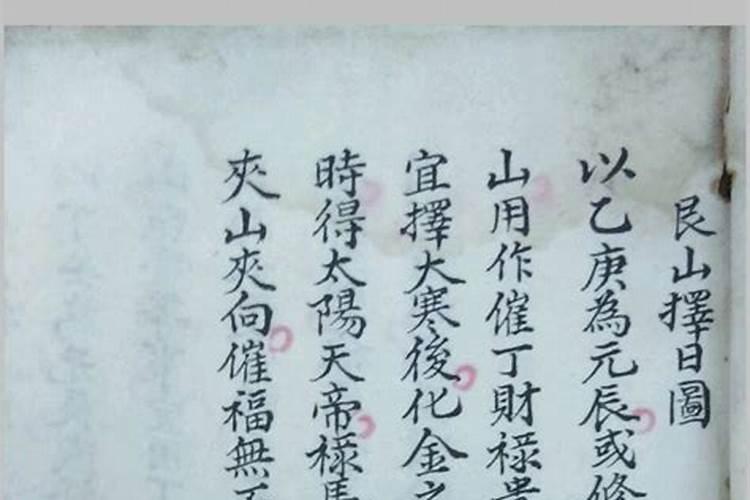 艮山擇日圖
以乙庚為元辰或修
山用作催丁財祿貴
宜擇大寒後化金之
時得太陽天帝祿馬
夾山夾向催福無不